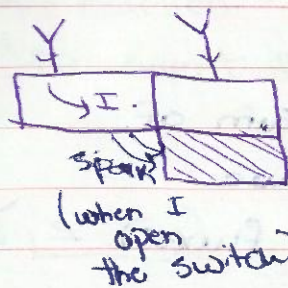 I.
Spark
(when I
open
the switch)